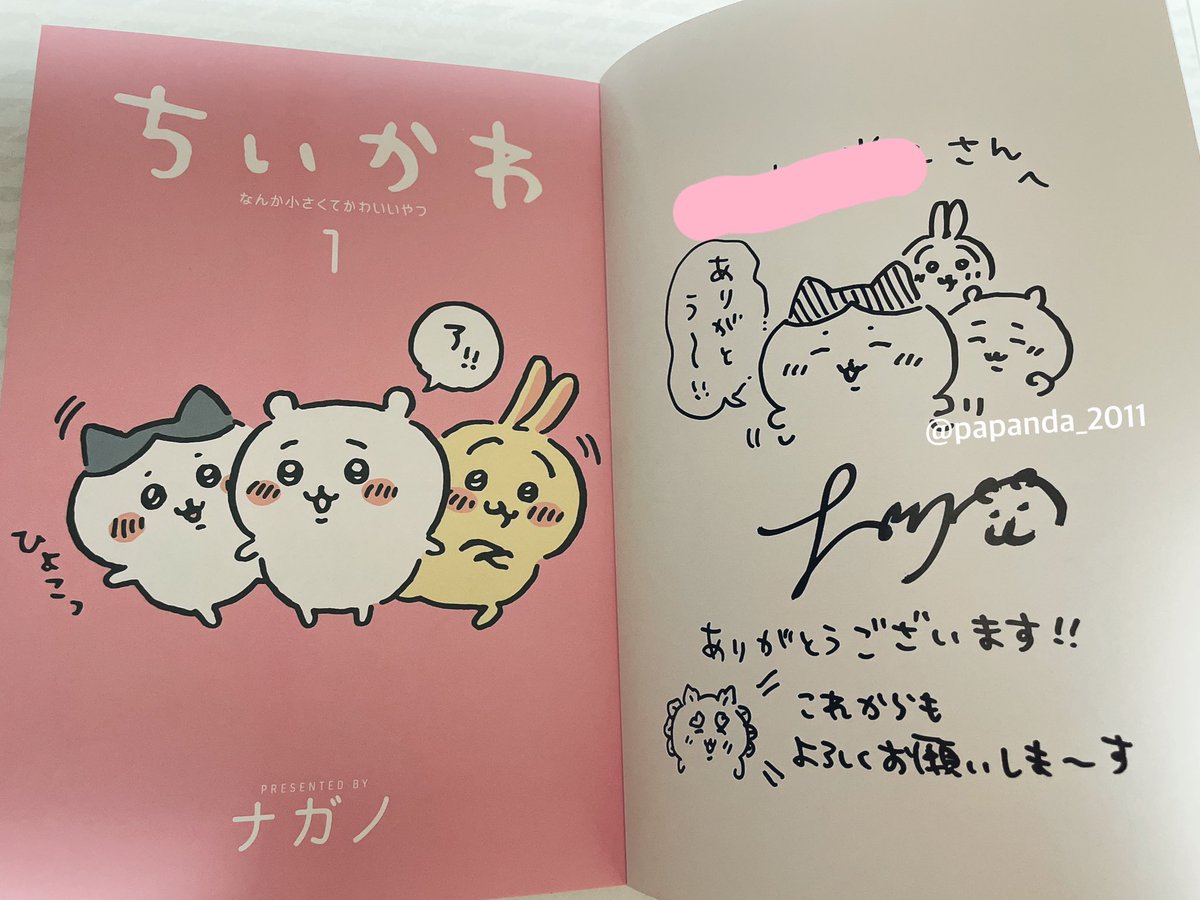 ちいかわ
なんか小さくてかわいいやつ
1
ア!!
ひょこっ
PRESENTED BY
ナガノ
さんへ
ありがと
う〜!!
@papanda_2011
ありがとうございます!!
これからも
よろしくお願いしま〜す